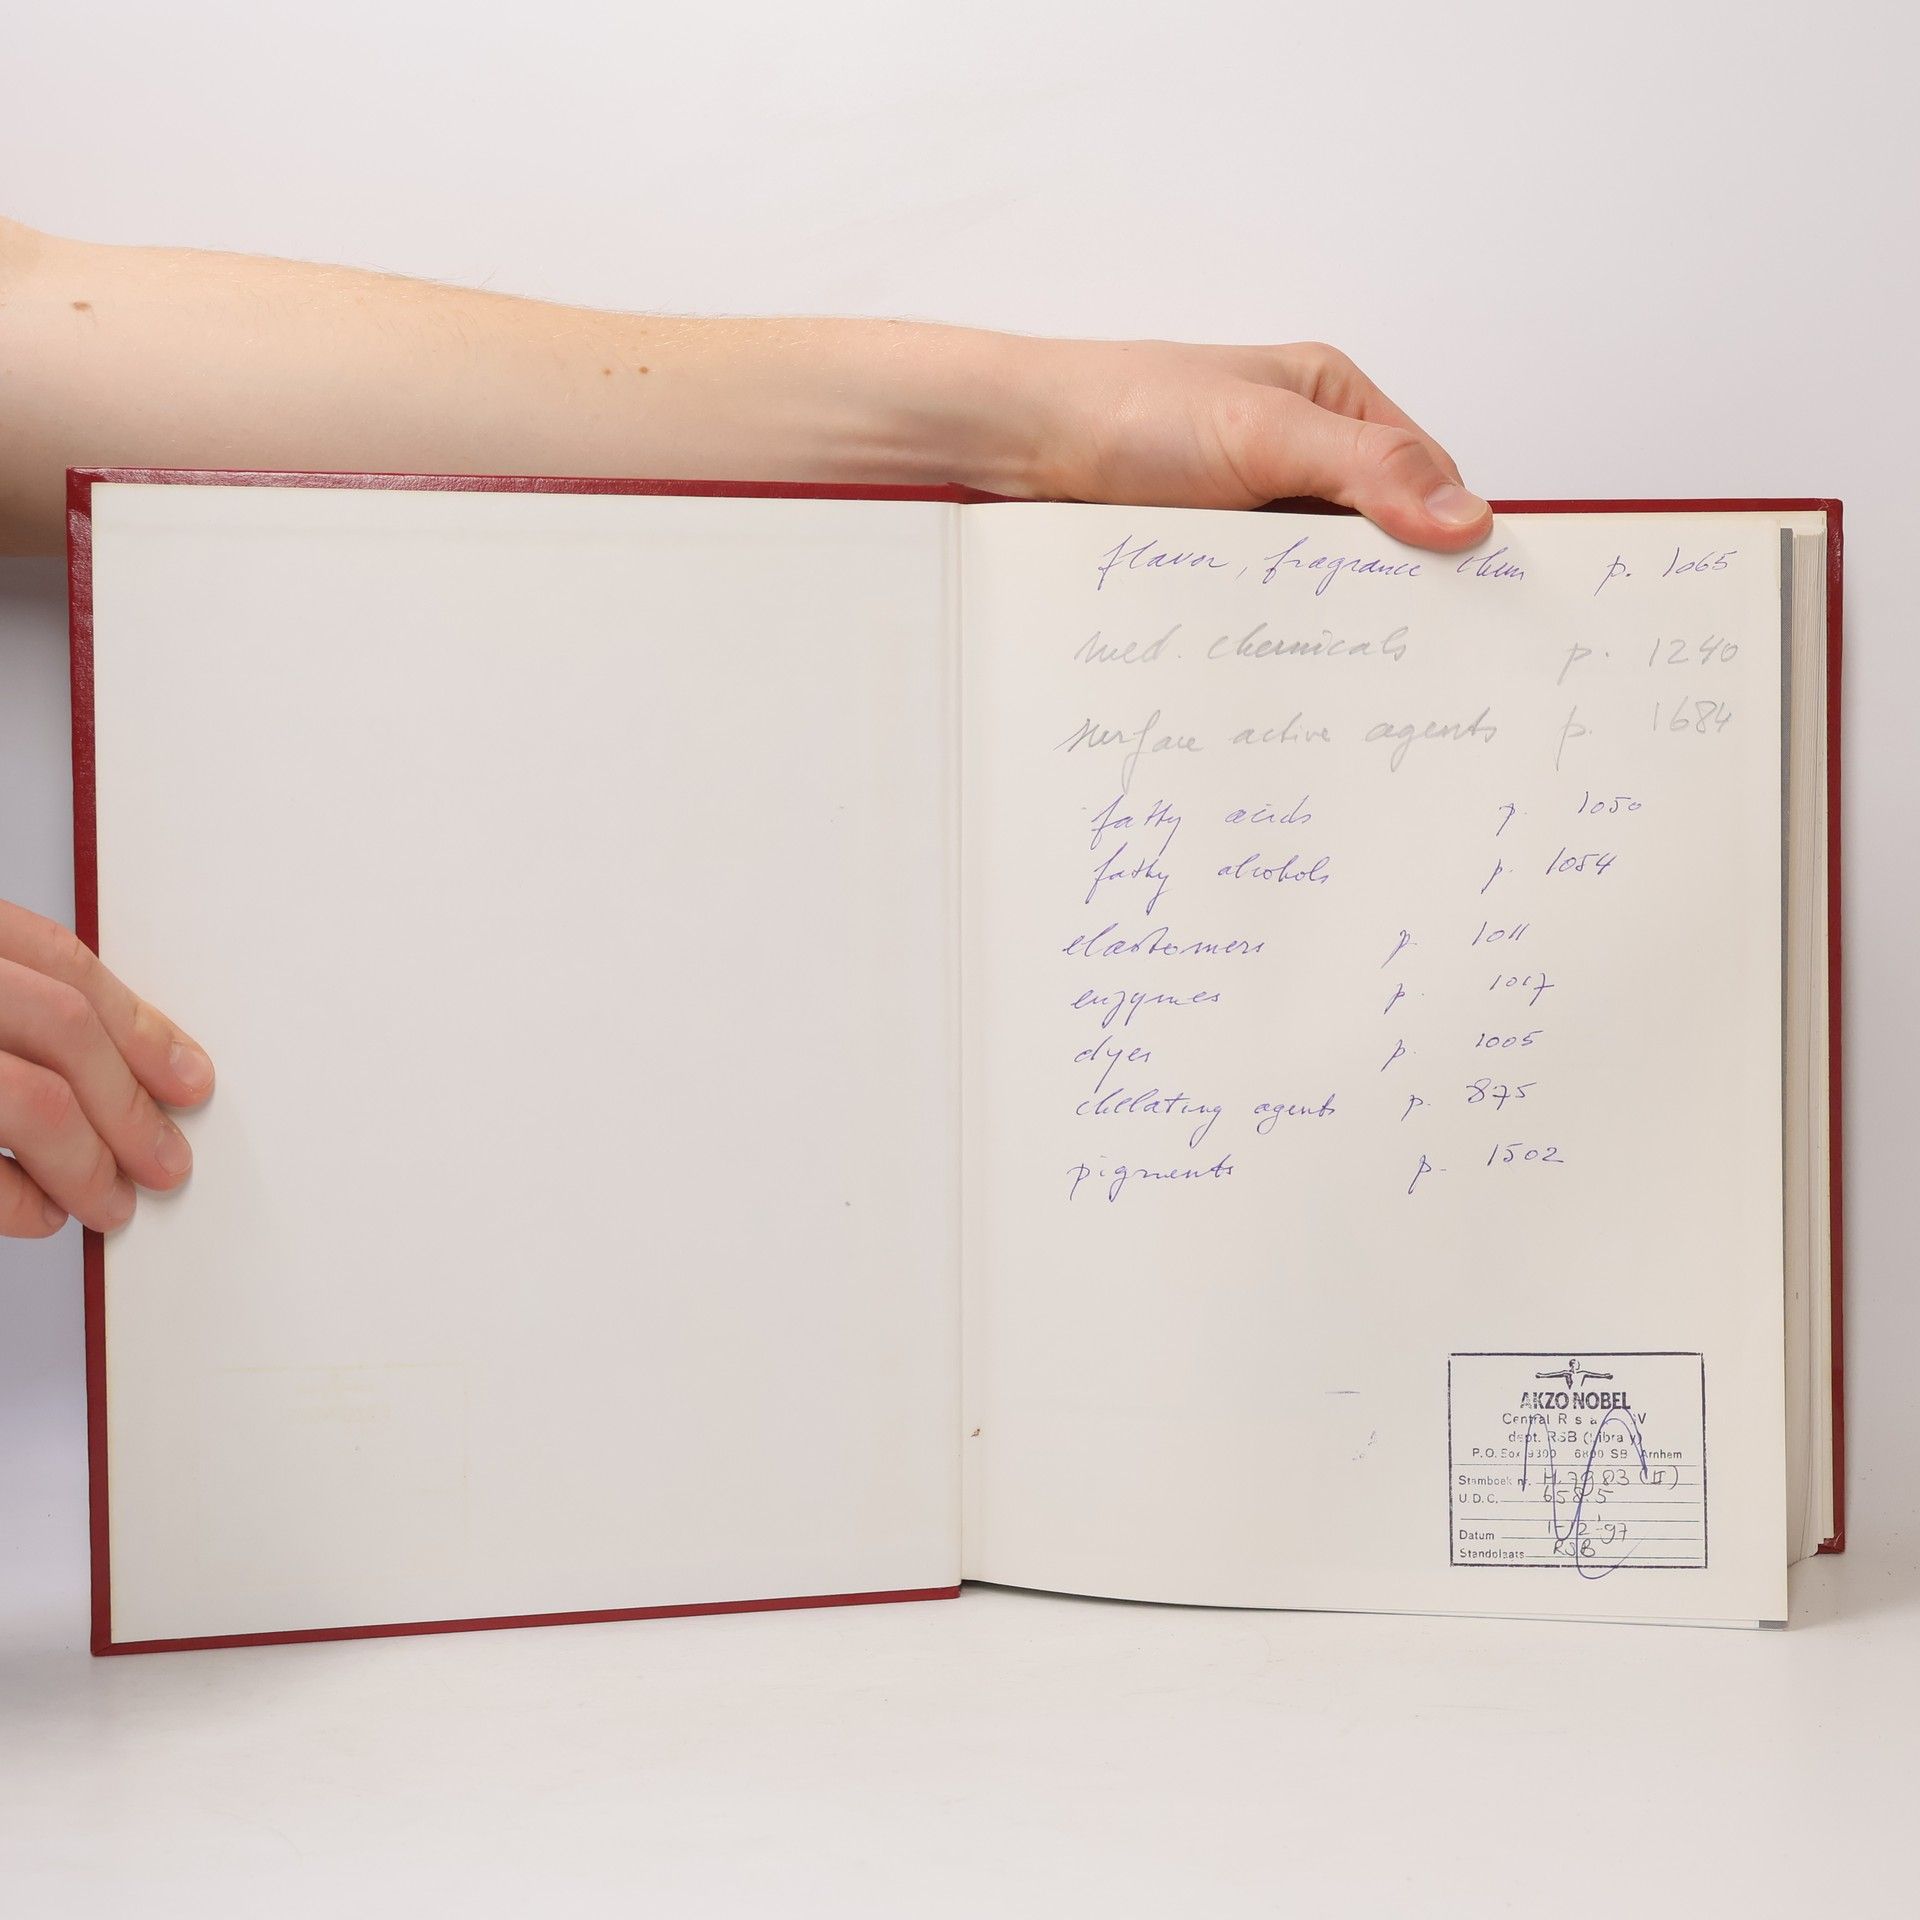 flavor, fragrance chem p. 1065
med. chemicals p. 1240
surface active agents p. 1684
fatty acids p. 1050
fatty alcohols p. 1054
elastomers p. 1011
enzymes p. 1017
dyes p. 1005
chelating agents p. 875
pigments p. 1502
AKZO NOBEL
Central
dept. RSB (Library)
P.O. Box 9300 6800 SB Arnhem
Stamboek nr. H.7983 (II)
U.D.C. 658.5
Datum 1-12-'97
Standplaats RSB